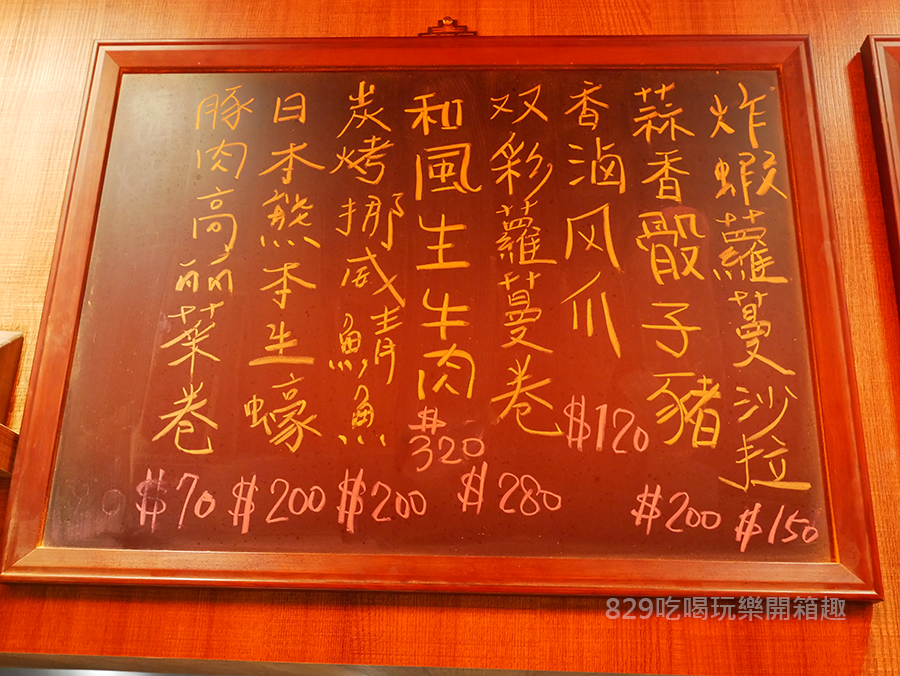 炸蝦蘿蔓沙拉 $150
蒜香骰子豬 $200
香滷风爪 $120
双彩蘿蔓卷 $280
和風生牛肉 $320
炭烤挪威鯖魚 $200
日本熊本生蠔 $200
豚肉高丽菜卷 $70
829吃喝玩樂開箱趣